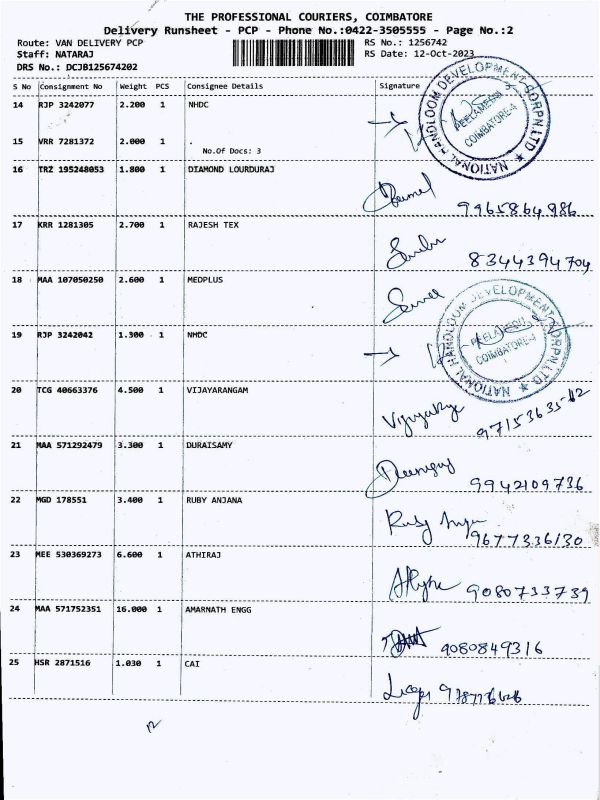 THE PROFESSIONAL COURIERS, COIMBATORE
Delivery Runsheet - PCP - Phone No.:0422-3505555 - Page No.:2
Route: VAN DELIVERY PCP RS No.: 1256742
Staff: NATARAJ RS Date: 12-Oct-2023
DRS No.: DCJB125674202
S No Consignment No Weight PCS Consignee Details Signature
14 RJP 3242077 2.200 1 NHDC
NATIONAL HANDLOOM DEVELOPMENT CORPN.LTD
PEELAMEDU
COIMBATORE-4
15 VRR 7281372 2.000 1 .
No.Of Docs: 3
16 TRZ 195248053 1.800 1 DIAMOND LOURDURAJ
9965864986
17 KRR 1281305 2.700 1 RAJESH TEX
8344394704
18 MAA 107050250 2.600 1 MEDPLUS
19 RJP 3242042 1.300 1 NHDC
NATIONAL HANDLOOM DEVELOPMENT CORPN.LTD
PEELAMEDU
COIMBATORE-4
20 TCG 40663376 4.500 1 VIJAYARANGAM
21 MAA 571292479 3.300 1 DURAISAMY
9942109736
22 MGD 178551 3.400 1 RUBY ANJANA
Ruby
9677336130
23 MEE 530369273 6.600 1 ATHIRAJ
9080733739
24 MAA 571752351 16.000 1 AMARNATH ENGG
9080849316
25 HSR 2871516 1.030 1 CAI